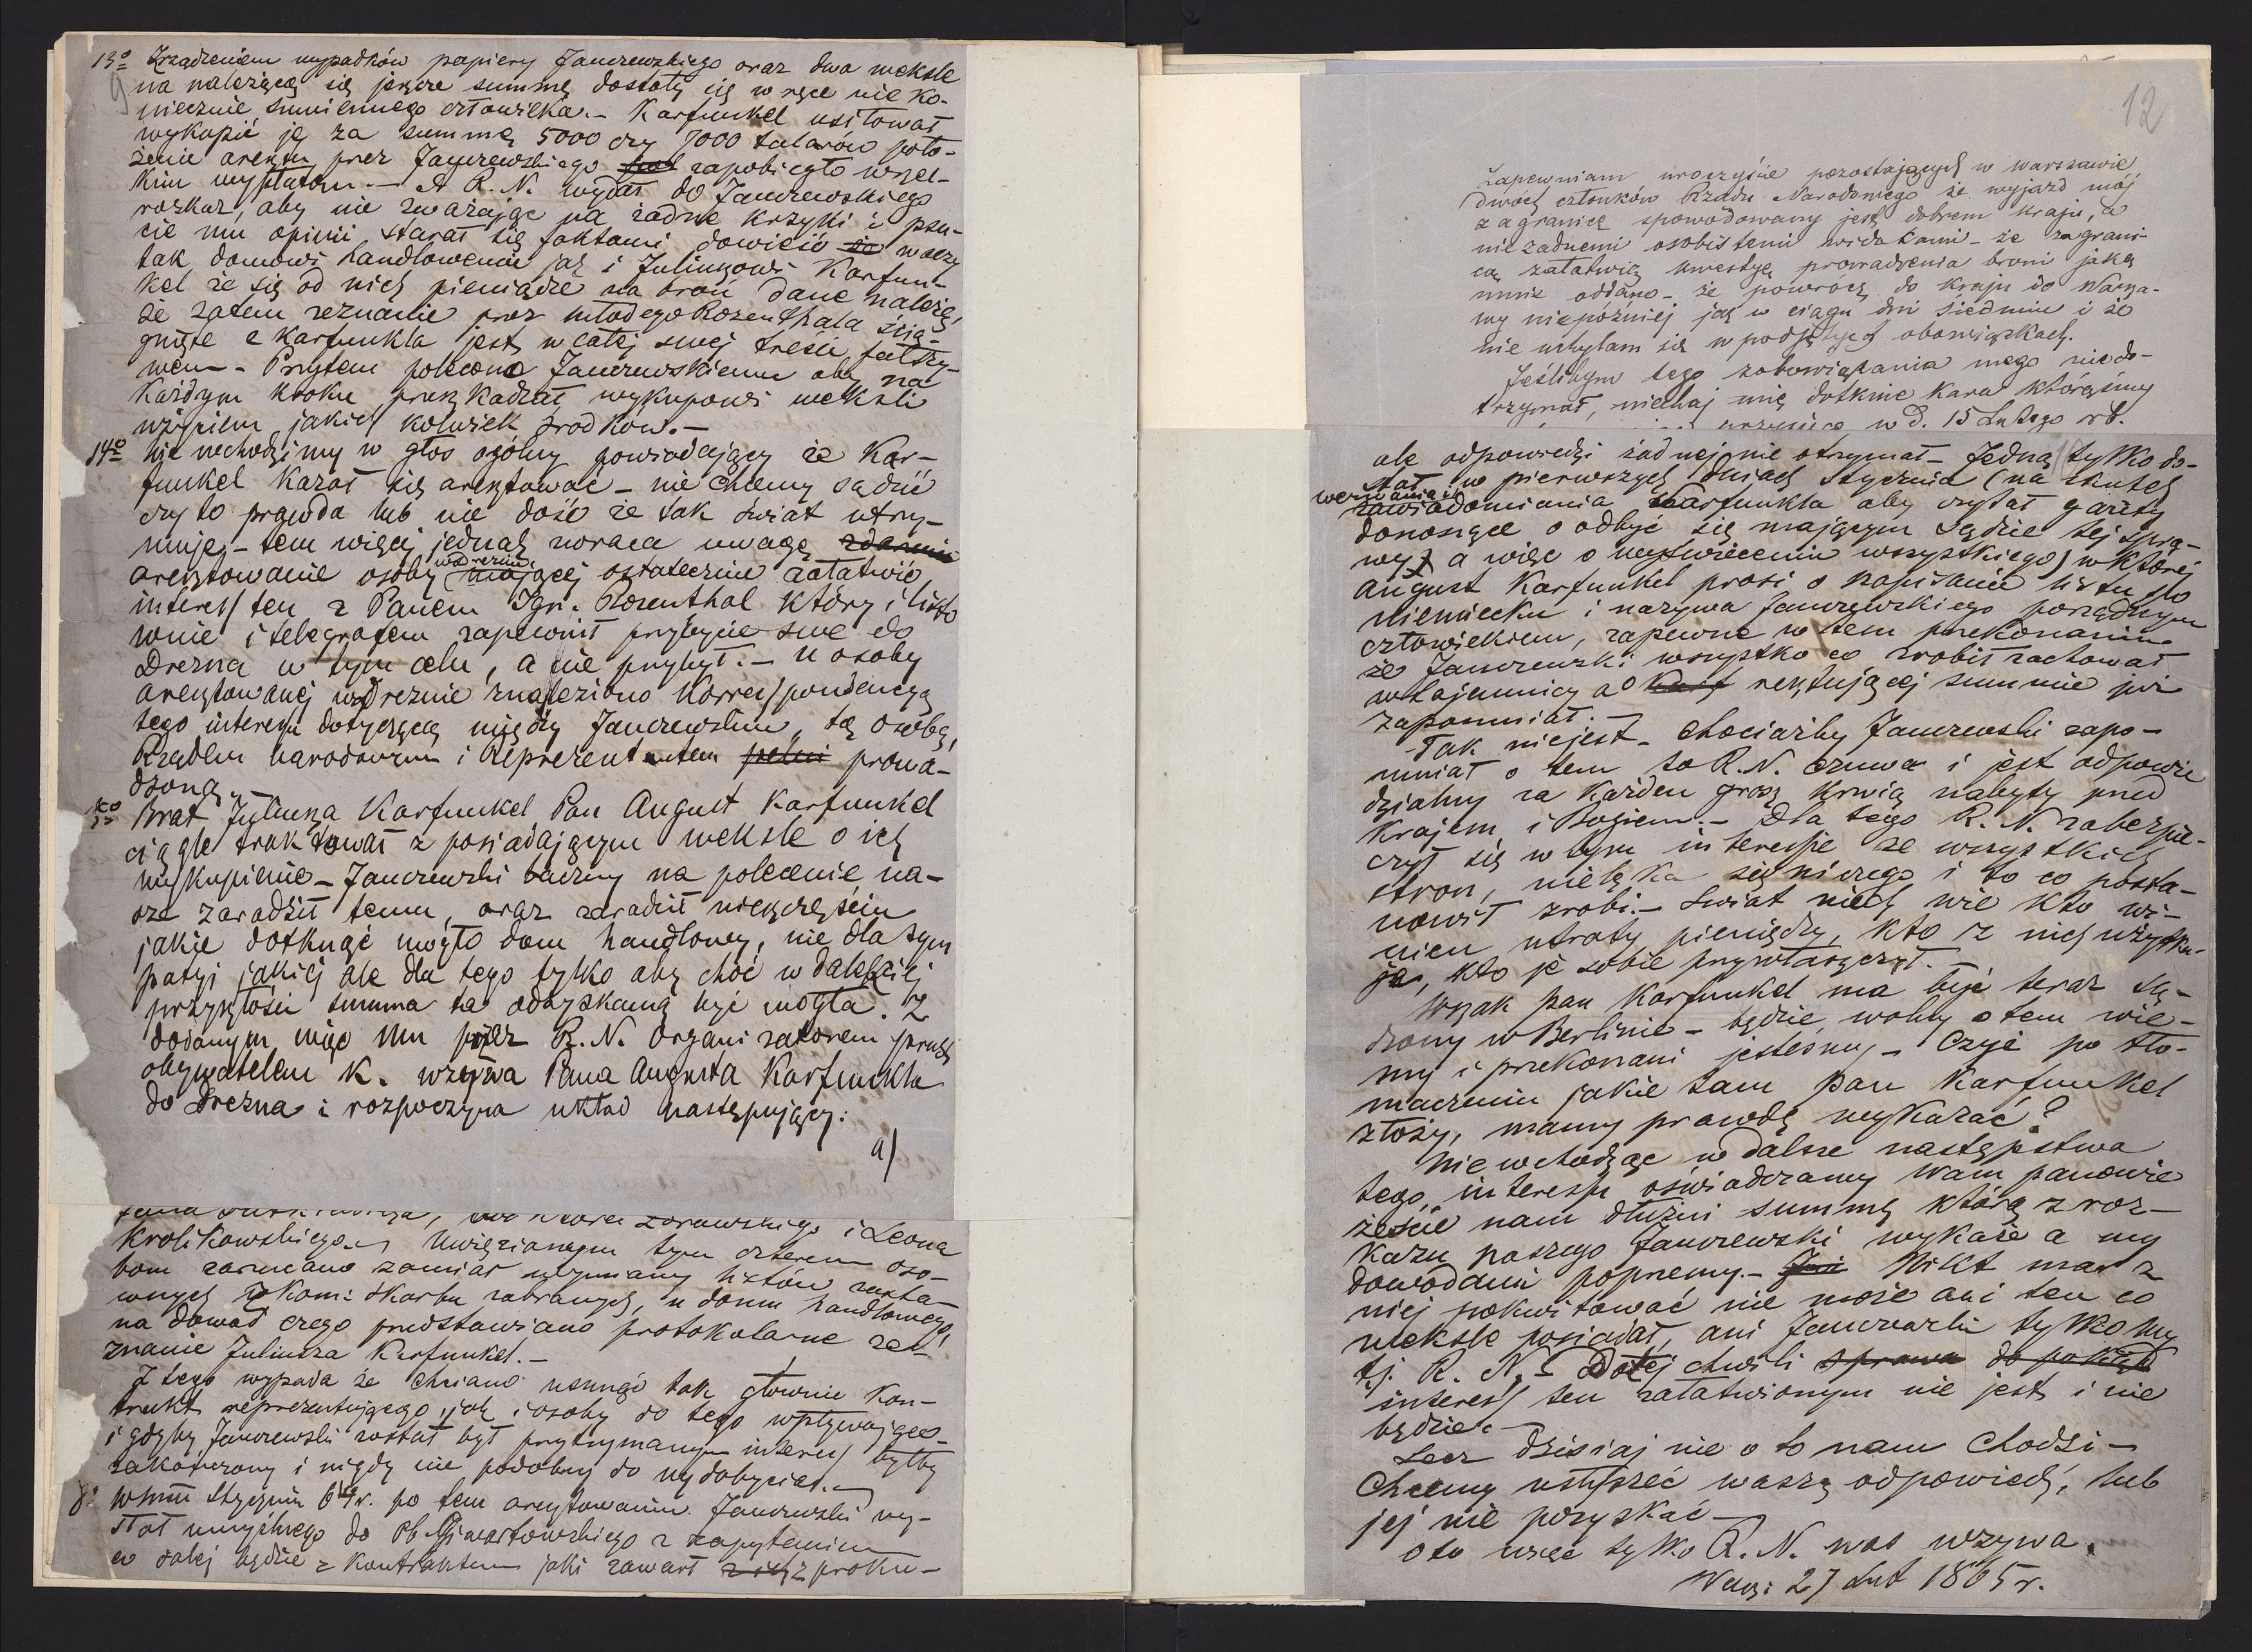 13º Zrządzeniem wypadków papiery Janczewskiego oraz dwa weksle
9 na należącą się jeszcze summę dostały się w ręce nie ko-
niecznie sumiennego człowieka. – Karfunkel usiłował
wykupić je za summę 5000 czy 7000 talarów poło-
żenie aresztu przez Janczewskiego zapobiegło wszel-
kim wypłatom. – A R. N. wydał do Janczewskiego
rozkaz, aby nie zważając na żadne krzyki i psu-
cie mu opinii starał się faktami dowieść
tak domowi handlowemu jak i Juliuszowi Karfun-
kel że się od nich pieniądze na broń dane należą,
że zatem zeznanie przez młodego Rosenthala ścią-
gnięte z Karfunkla jest w całej swej treści fałszy-
wem – Przytem polecono Janczewskiemu aby na
każdym kroku przeszkadzał wykupowi weksli
użyciem jakich kolwiek środków. –
14º Nie wchodzimy w głos ogólny powiadający że Kar-
funkel kazał się aresztować – nie chcemy sądzić
czy to prawda lub nie dość że tak świat utrzy-
muje – tem więcej jednak zwraca uwagę zdarzenie
aresztowanie osoby w Dreznie mającej ostatecznie załatwić
interes ten z Panem Ign. Rosenthal który i listo
wnie i telegrafem zapewnił przybycie swe do
Drezna w tym celu, a nie przybył. – U osoby
aresztowanej w Dreznie znaleziono korrespondencyą
tego interesu dotyczącą między Janczewskim, tą osobą,
Rządem narodowym i Reprezentantem prowa-
dzoną. –
15º Brat Juliusza Karfunkel Pan August Karfunkel
ciągle traktował z posiadającym weksle o ich
wykupienie – Janczewski baczny na polecenie, na-
sze zaradził temu, oraz zaradził nieszczęściu
jakie dotknąć mogło dom handlowy, nie dla sym
patyi jakiej ale dla tego tylko aby choć w dalszej
przyszłości summa ta odzyskaną być mogła. Z
dodanym więc mu przez R. N. Organizatorem prusk
obywatelem K. wzywa Pana Augusta Karfunkla
do Drezna i rozpoczyna układ następujący:
a)
Żórawskiego i Leona
Krolikowskiego. Uwięzionym tym czterem oso-
bom zarzucano zamiar wyzyskany listów zasta-
wnych z Kom: Skarbu zabranych, u domu handlowego,
na dowód czego przedstawiano protokolarne ze-
znanie Juliusza Karfunkel. –
Z tego wypada że chciano usunąć tak głównie Kon-
trakt reprezentującego, jak i osoby do tego wpływające –
i gdyby Janczewski został był przytrzymanym interes byłby
zakończony i nigdy nie podobny do wydobycia. –
8º W styczniu 64 r. po tem aresztowaniu Janczewski wy-
słał umyślnego do Ob. Giwartowskiego z zapytaniem
co dalej będzie z kontraktem jaki zawarł z proku-
12
Zapewniam uroczyście pozostających w Warszawie
dwóch członków Rządu Narodowego że wyjazd mój
zagranicę spowodowany jest dobrem kraju, a
nie żadnemi osobistemi widokami – że zagrani-
cą załatwię kwestyę prowadzenia broni jaką
mnie oddano – że powrócę do kraju do Warsza-
wy niepóźniej jak w ciągu dni siedmiu i że
nie uchylam się w podjętych obowiązkach.
Jeślibym tego zobowiązania mego niedo-
trzymał, niechaj mię dotknie kara którąśmy
w d. 15 Lutego rb.
ale odpowiedzi żadnej nie otrzymał – Jedną tylko do-
stał w pierwszych dniach Stycznia (na skutek
wezwania i
zawiadomienia Karfunkla aby czytał gazety
donoszące o odbyć się mającym sądzie tej spra-
wy, a więc o wyświeceniu wszystkiego) w której
August Karfunkel prosi o napisanie listu po
niemiecku i nazywa Janczewskiego porządnym
człowiekiem, zapewne w tem przekonaniu
że Janczewski wszystko co zrobił zachował
w tajemnicy a o resztującej summie już
zapomniał. –
Tak niejest – Chociażby Janczewski zapo-
mniał o tem to R. N. czuwa i jest odpowie
dzialny za każden grosz krwią nabyty przed
Krajem i Bogiem. – Dla tego R. N. zabezpie-
czył się w tym interesie ze wszystkich
stron, nielęka się niczego i to co posta-
nowił zrobi. – Świat niech wie kto wi-
nien utraty pieniędzy, kto z nich użytku-
je, kto je sobie przywłaszczył. –
Wszak pan Karfunkel ma być teraz są-
dzony w Berlinie – będzie wolny o tem wie-
my i przekonani jesteśmy – Czyż po tło-
maczeniu jakie tam pan Karfunkel
złoży, mamy prawdę wykazać?
Nie wchodząc w dalsze następstwa
tego interesu oświadczamy Wam panowie
żeście nam dłużni summę którą z roz-
kazu naszego Janczewski wykaże a my
dowodami poprzemy. – Nikt nas z
niej pokwitować nie może ani ten co
weksle posiadał, ani Janczewski tylko my
tj. R. N. – Do tej chwili sprawa do pokąd
interes ten załatwionym nie jest i nie
będzie. –
Lecz dzisiaj nie o to nam chodzi –
Chcemy usłyszeć waszą odpowiedź, lub
jej nie pozyskać –
Oto więc tylko R. N. was wzywa.
27 Lut 1865 r.